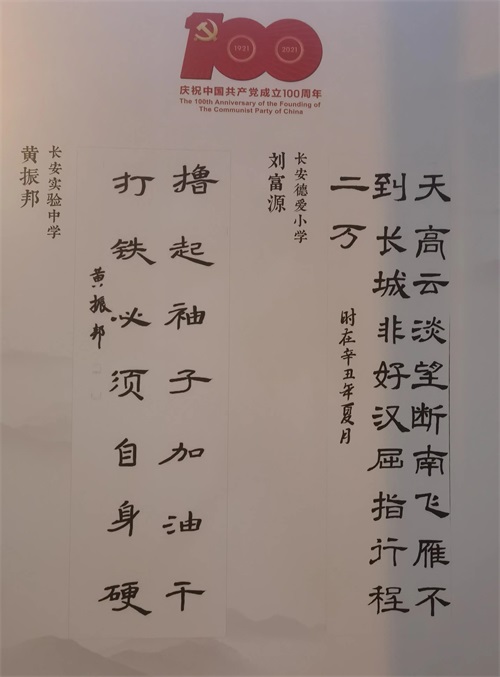 100
1921
2021
庆祝中国共产党成立100周年
The 100th Anniversary of the Founding of
The Communist Party of China
天高云淡望断南飞雁不
到长城非好汉屈指行程
二万
时在辛丑年夏月
长安德爱小学
刘富源
撸起袖子加油干
打铁必须自身硬
黄振邦
长安实验中学
黄振邦